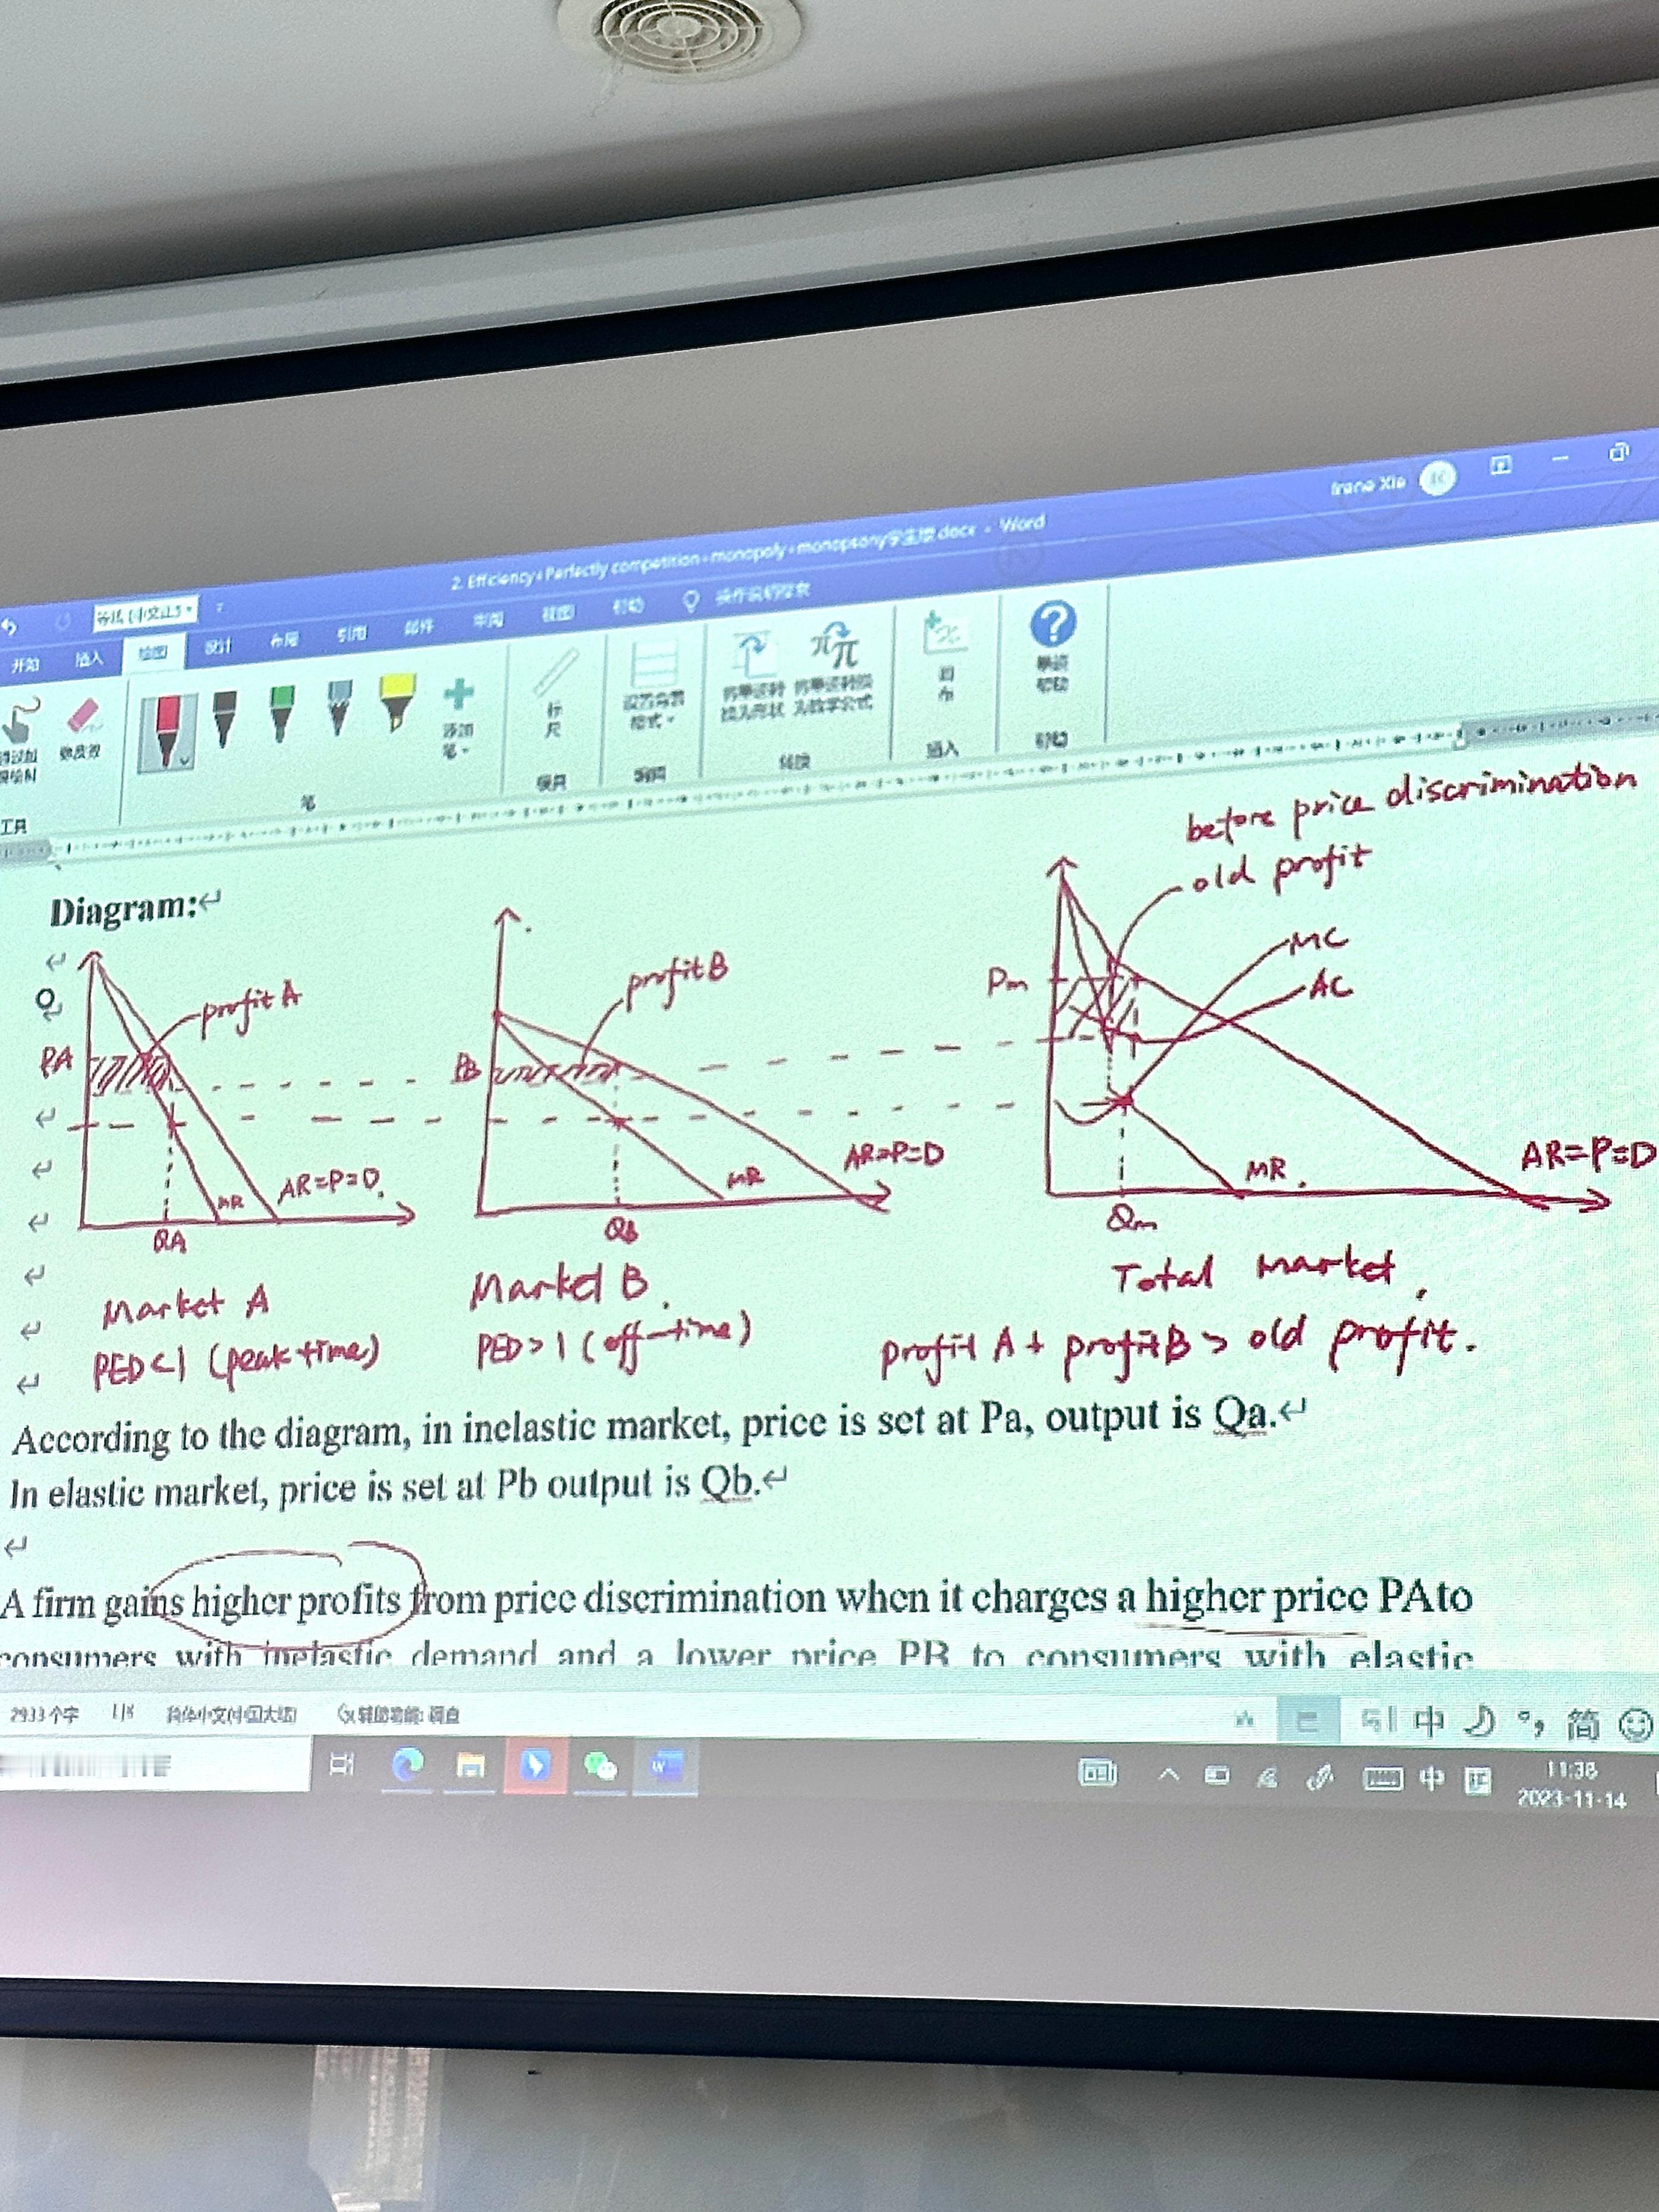 Irene Xie
2. Efficiency+Perfectly competition+monopoly+monopsony学生版.docx - Word
开始 插入 绘图 设计 布局 引用 邮件 审阅 视图 帮助 操作说明搜索
橡皮擦
添加
笔
标
尺
设置背景
格式
将墨迹转
换为形状
将墨迹转换
为数学公式
工具
笔
模具
编辑
转换
插入
帮助
before price discrimination
old profit
Diagram:
MC
AC
profit A
profit B
Pm
PA
PB
MR
AR=P=D
MR
AR=P=D
MR
AR=P=D
QA
Qb
Qm
Market A
Market B
Total market
PED<1 (peak time)
PED>1 (off-time)
profit A + profit B > old profit.
According to the diagram, in inelastic market, price is set at Pa, output is Qa.
In elastic market, price is set at Pb output is Qb.
A firm gains higher profits from price discrimination when it charges a higher price PAto
consumers with inelastic demand and a lower price PB to consumers with elastic
2933 个字 简体中文(中国大陆) 辅助功能: 调查
中 简
中
11:38
2023-11-14